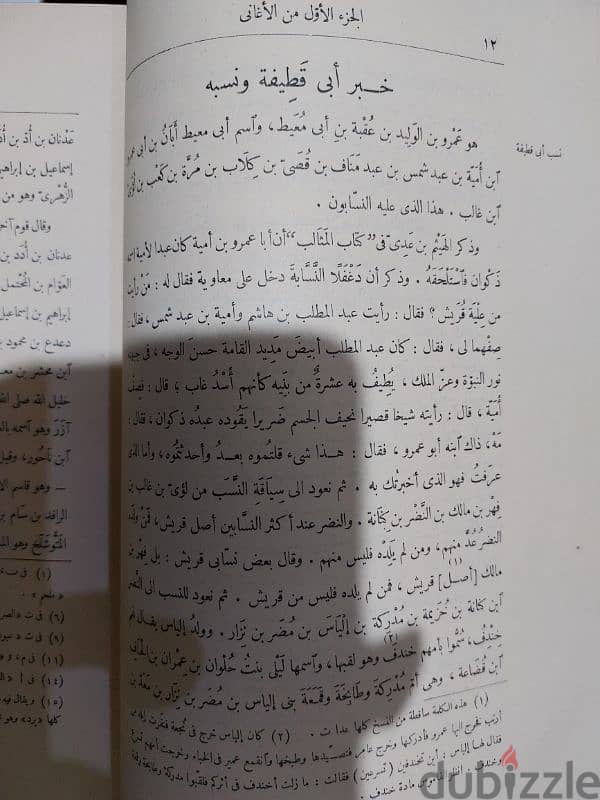 الجزء الأول من الأغانى
١٢
خبر أبى قَطِيفة ونسبه
نسب أبى قطيفة
هو عَمْرو بن الوَلِيد بن عُقْبة بنِ أبى مُعَيط، وٱسم أبى معيط أَبَانُ بن أبى عمرو
ٱبن أُمَيَّة بن عبد شمس بن عبد مَنَاف بن قُصَىّ بن كِلَاب بن مُرَّة بن كَعْب بن لُؤَىّ
ٱبن غالب . هذا الذى عليه النسّابون .
وذكر الهَيْثَم بن عَدِىّ فى "كتاب المثالب" أن أبا عمرو بن أمية كان عبدا لأمية ٱسمه
ذَكْوان فٱستَلْحَقَه . وذكر أن دَغْفَلًا النَّسَّابة دخل على معاوية فقال له : مَنْ رأيتَ
من عِلْية قُرَيش؟ فقال : رأيت عبد المطلب بن هاشم وأمية بن عبد شمس، فقال :
صِفْهما لى ، فقال : كان عبد المطلب أبيضَ مَدِيد القامة حسنَ الوجه ، فى جبينه
نور النبوّة وعزّ الملك ، يُطِيفُ به عشرةٌ من بَنِيه كأنهم أُسْدُ غاب ؛ قال : فصِفْ
أُميّة ، قال : رأيته شيخا قصيرا نحيف الجسم ضَرِيرا يَقُوده عبدُه ذكوان ، قال :
مَهْ، ذاك ٱبنه أبو عمرو ، فقال : هـذا شىء قلتموه بعـدُ وأحدثتُموه، وأما الذى
عرَفتُ فهو الذى أخبرتُك به . ثم نعود الى سِيَاقةِ النَّسَب من لؤىّ بن غالب بن
فِهْر بن مالك بن النَّضْر بن كِنَانة . والنضر عند أكثر النسّابين أصل قريش، فمن ولَده
النضرُ عُدَّ منهم، ومن لم يَلِدْه فليس منهم . وقال بعض نسّابى قريش : بل فِهْر بن
مالك [أصـل](١) قريش ، فمن لم يلده فليس من قريش . ثم نعود للنسب الى النضر
ٱبن كنانة بن خُزيمة بن مُدْرِكة بن إلْيَاسَ بن مُضَر بن نِزَار . وولدُ إلياس يقال لهم
خِنْدِف، سُمُّوا بأمهم خِنْدف(٢) وهو لقبها، وٱسمها لَيْلَى بنتُ حُلْوان بن عِمْران بن الحَافِى
ٱبن قُضَاعة ، وهى أمّ مُدْرِكة وطَابِخَة وقَمَعة بنى إلياس بن مُضَر بن نِزَار بن مَعَدّ بن
(١) هذه الكلمة ساقطة من النسخ كلها عدا ت . (٢) كان إلياس خرج فى نُجعة فنفرت إبله من
أرنب فخرج اليها عمرو فأدركها وخرج عامر فتصيّدها وطبخها وٱنقمع عمير فى الخباء وخرجت أمهم تسرع
فقال لها إلياس : أين تخندفين (تسرعين) فقالت : ما زلت أخندف فى أثركم فلقبوا مدركة وطابخة وقمعة
وخندف . مادة خندف .
عَدْنان بن أُدّ بن
إسماعيل بن إبراهيم
الزُّهْرىّ وهو من
وقال قوم آخ
عدنان بن أُدَد بن
العَوّام بن المُحْتمل
إبراهيم بن إسماعيل
دعدع بن محمود
ٱبن محشر بن
خليل الله صلى الله
آزَرَ وهو ٱسمه
ٱبن نَاحُور، وقيل
— وهو قاسم
الراقد بن سَام بن
المَتُّوشَلَخ وهو
(١)
(٦) فى ت
(٨) فى ت
(١١) فى م، و
(١٤) فى أ
(١٥) ويقال فيه
dubizzle